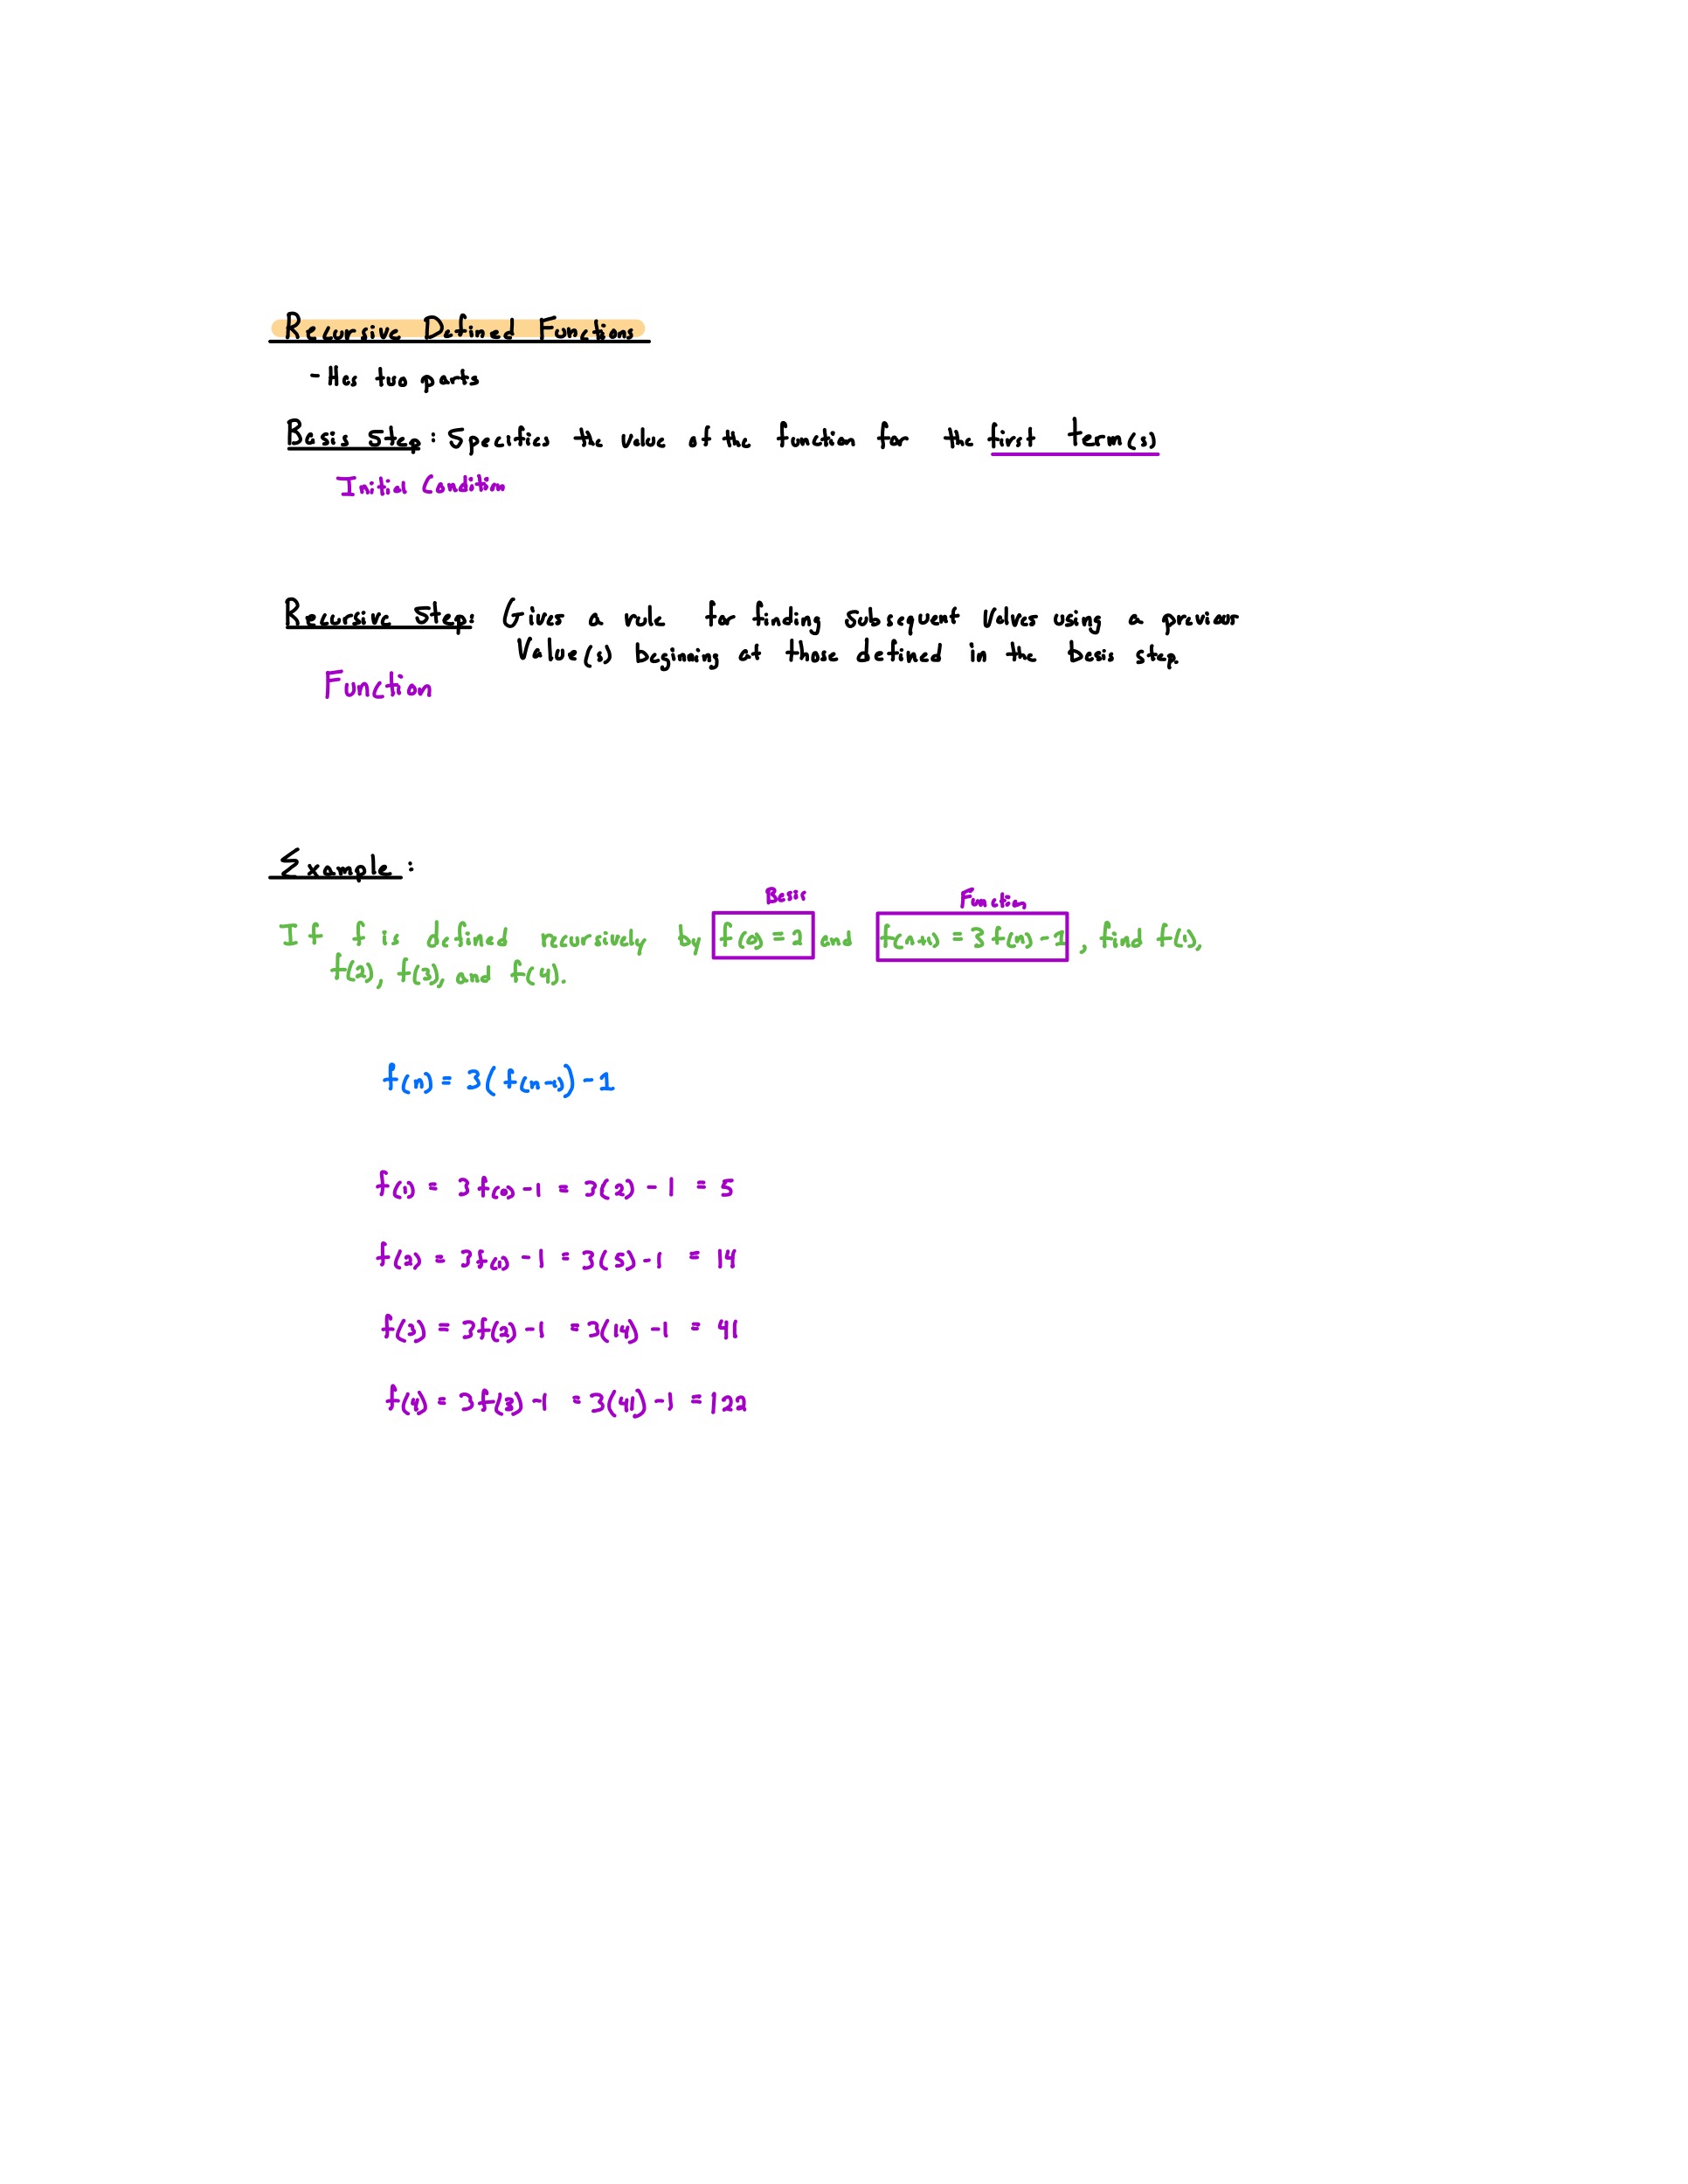 Recursive Defined Functions
- Has two parts
Basis Step: Specifies the value of the function for the first term(s)
Initial Condition
Recursive Step: Gives a rule for finding subsequent Values using a previous
Value(s) beginning at those defined in the basis step.
Function
Example:
Basis Function
If f is defined recursively by f(0) = 2 and f(n+1) = 3f(n) - 1, find f(1),
f(2), f(3), and f(4).
f(n) = 3(f(n-1)) - 1
f(1) = 3f(0) - 1 = 3(2) - 1 = 5
f(2) = 3f(1) - 1 = 3(5) - 1 = 14
f(3) = 3f(2) - 1 = 3(14) - 1 = 41
f(4) = 3f(3) - 1 = 3(41) - 1 = 122